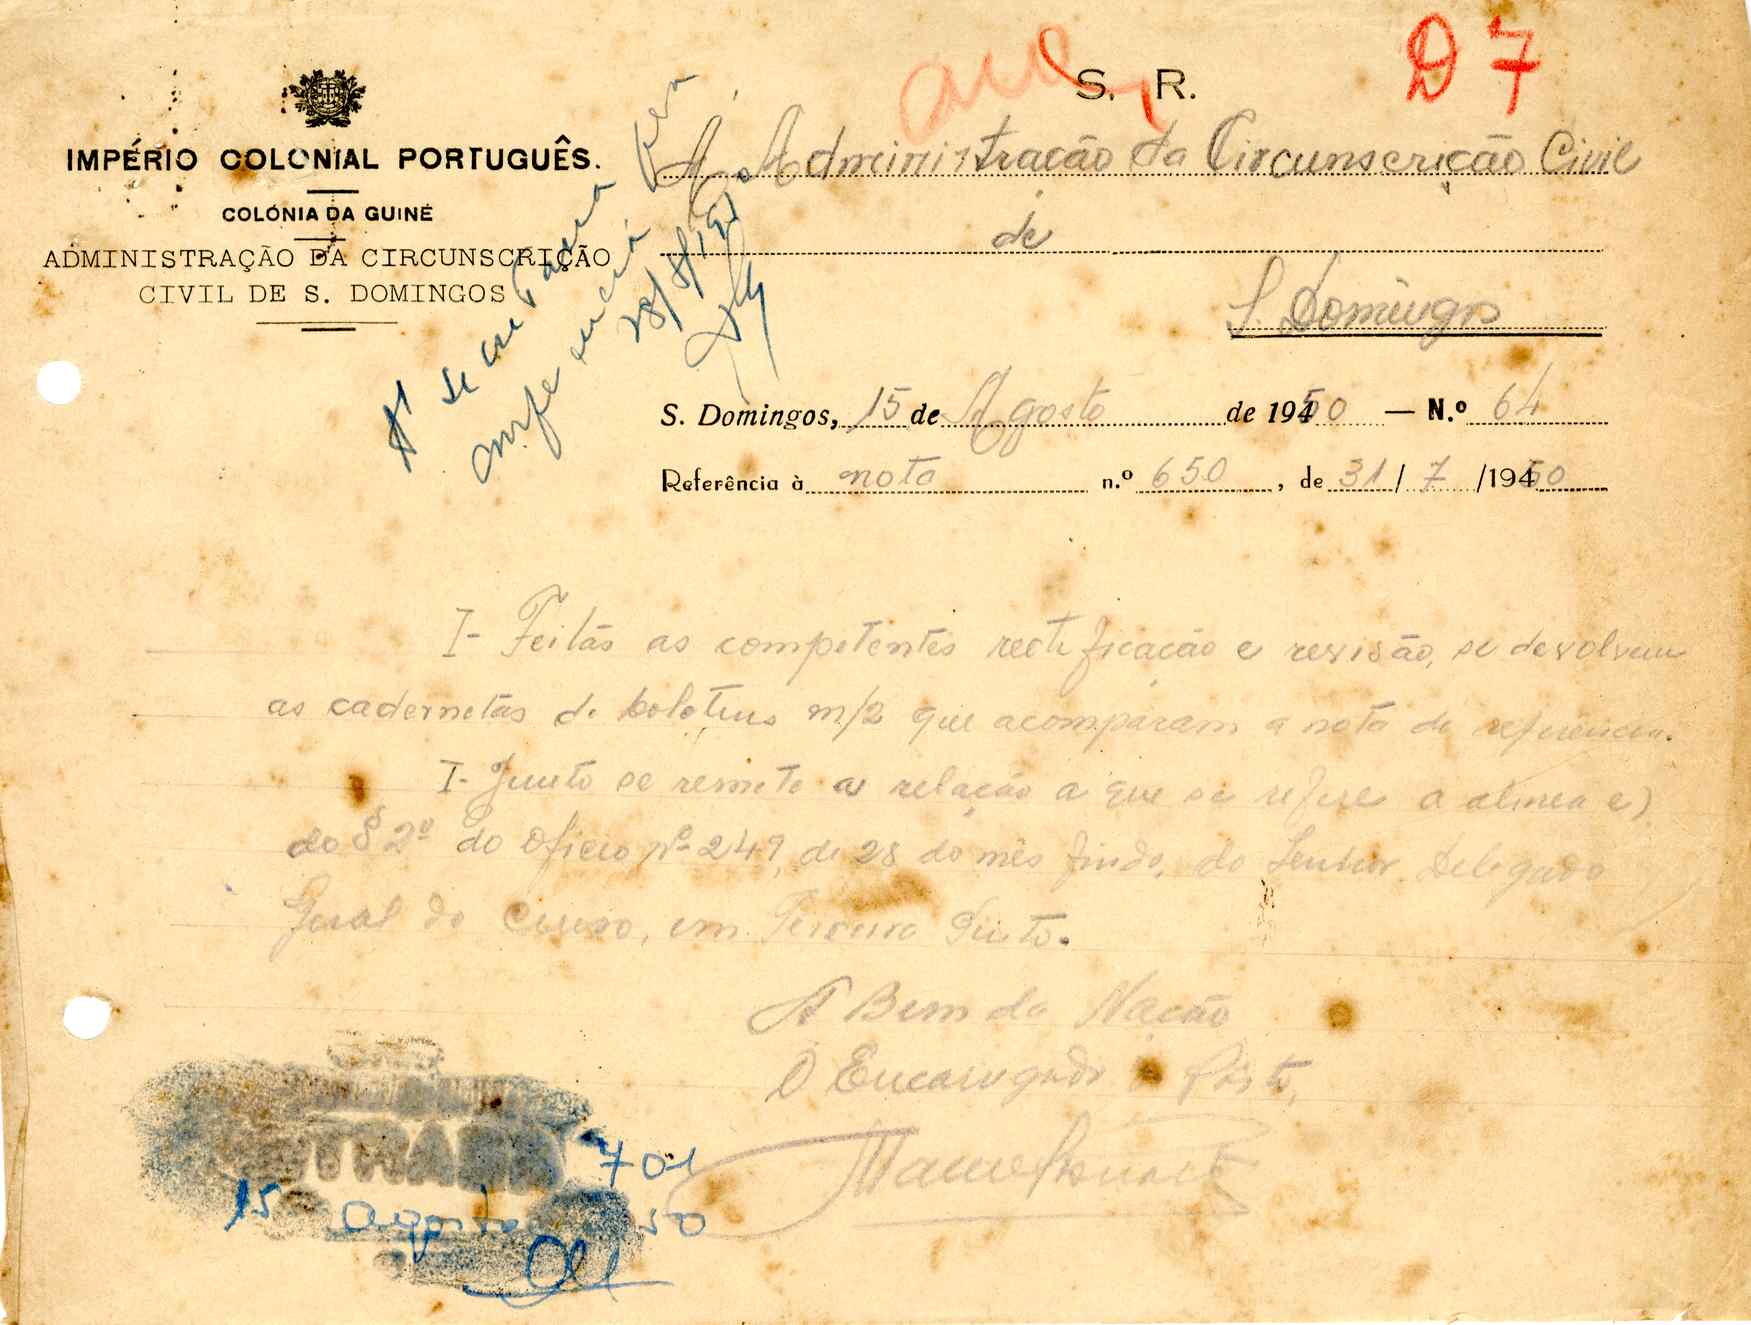 D 7
S. R.
IMPÉRIO COLONIAL PORTUGUÊS.
COLÓNIA DA GUINÉ
ADMINISTRAÇÃO DA CIRCUNSCRIÇÃO
CIVIL DE S. DOMINGOS
À Administração da Circunscrição Civil
de
S. Domingos
28/8/950
S. Domingos, 15 de Agosto de 19450 — N.º 64
Referência à nota n.º 650, de 31/7/19450
I- Feitas as competentes rectificação e revisão, se devolvem
as cadernetas de boletins m/2 que acomparam a nota de referência.
I- Junto se remete a relação a que se refere a alinea e)
do § 2º do Oficio nº 249, de 28 do mês findo, do Senhor Delegado
Geral do Censo, em
A Bem da Nação
O Encarregado do Posto,
701
15 Agosto 50